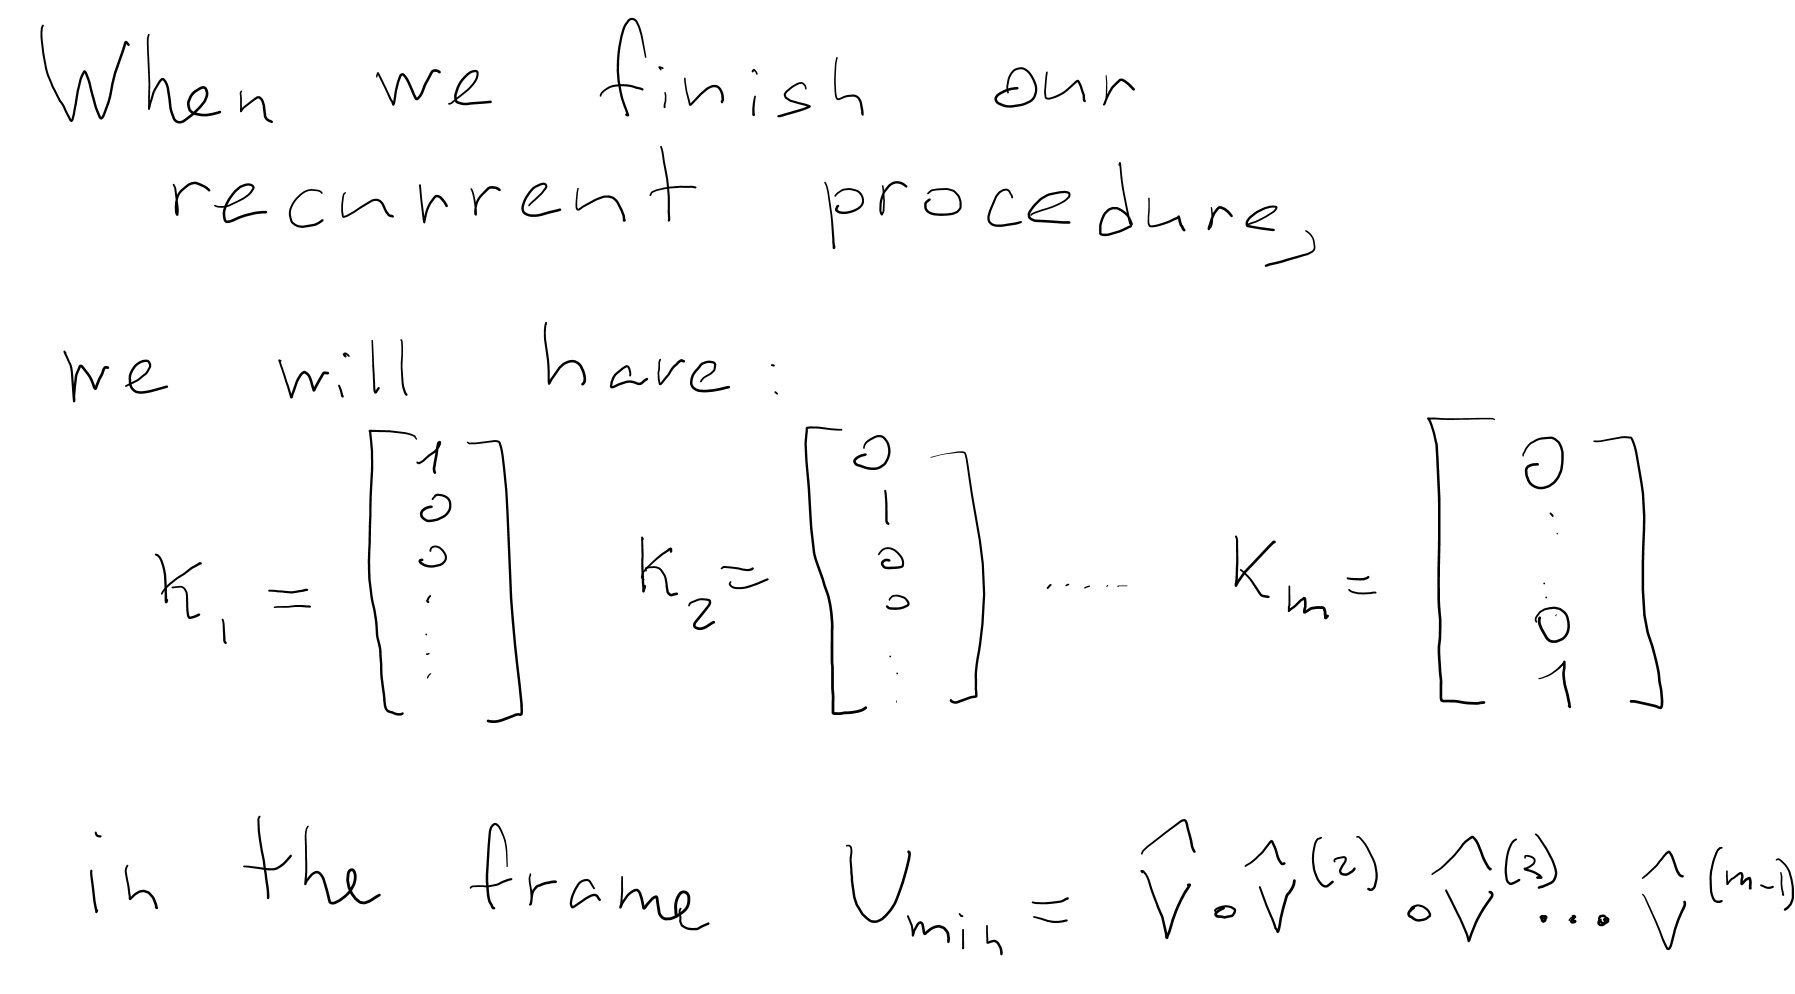 When we finish our
recurrent procedure,
we will have:
K₁ = [1 0 0 ⋮] K₂ = [0 1 0 0 ⋮] ..... Kₘ = [0 ⋮ 0 1]
in the frame U_min = V̂ ∘ V̂⁽²⁾ ∘ V̂⁽³⁾ ... V̂⁽ᵐ⁻¹⁾